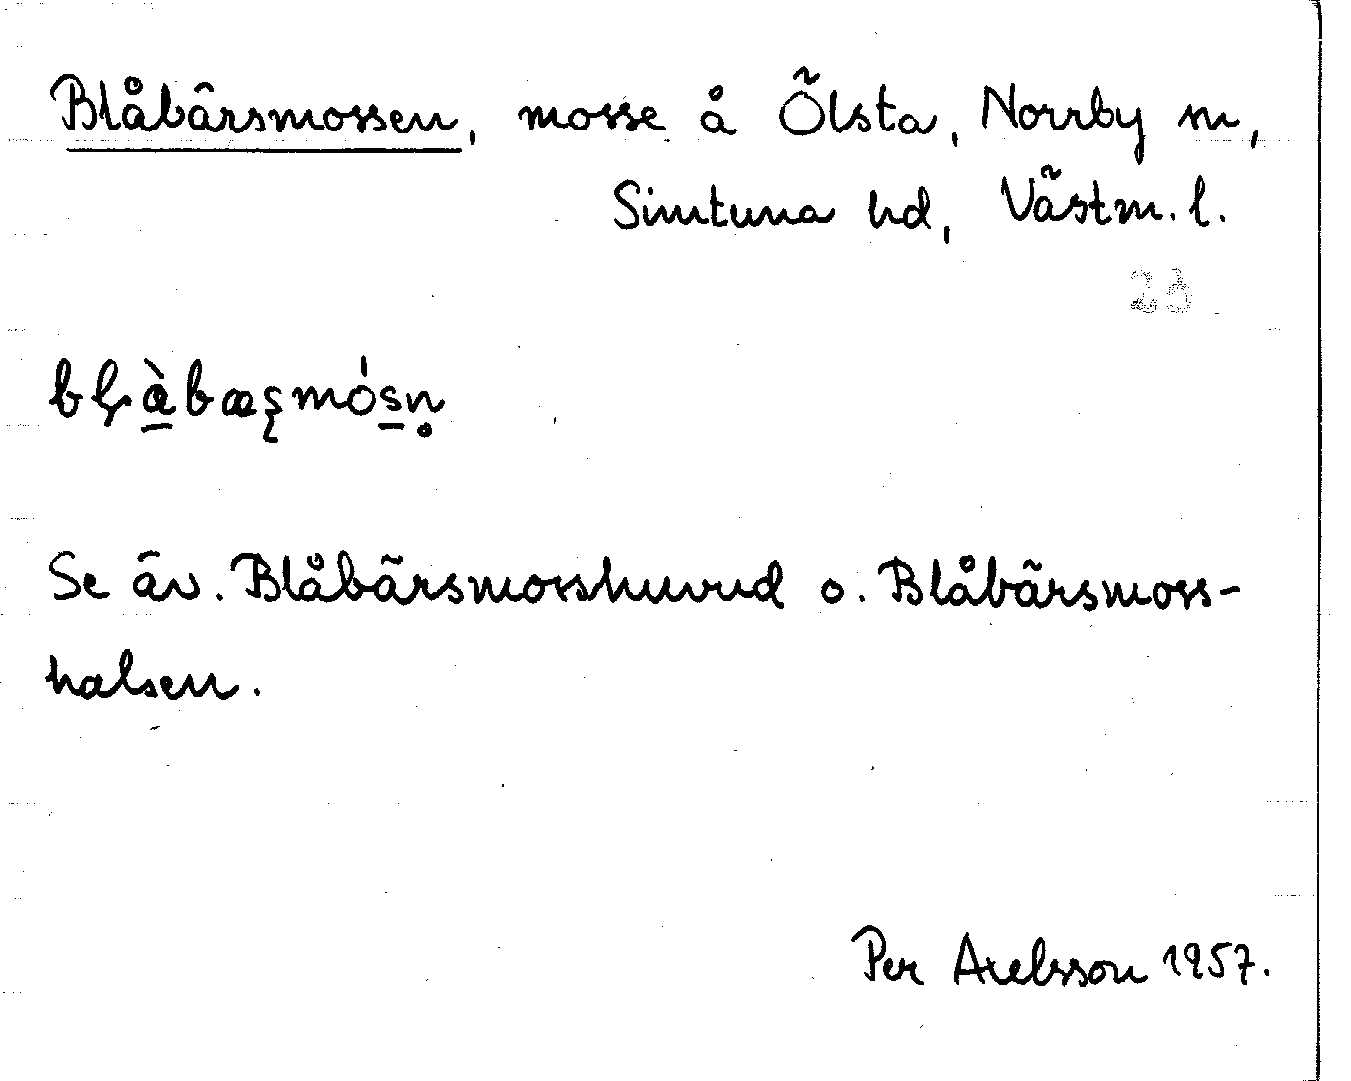 Blåbärsmossen, mosse å Ölsta, Norrby sn,
Simtuna hd, Västm. l.
bḷàbæʂmósṇ
Se äv. Blåbärsmosshuvud o. Blåbärsmoss-
halsen.
Per Axelsson 1957.